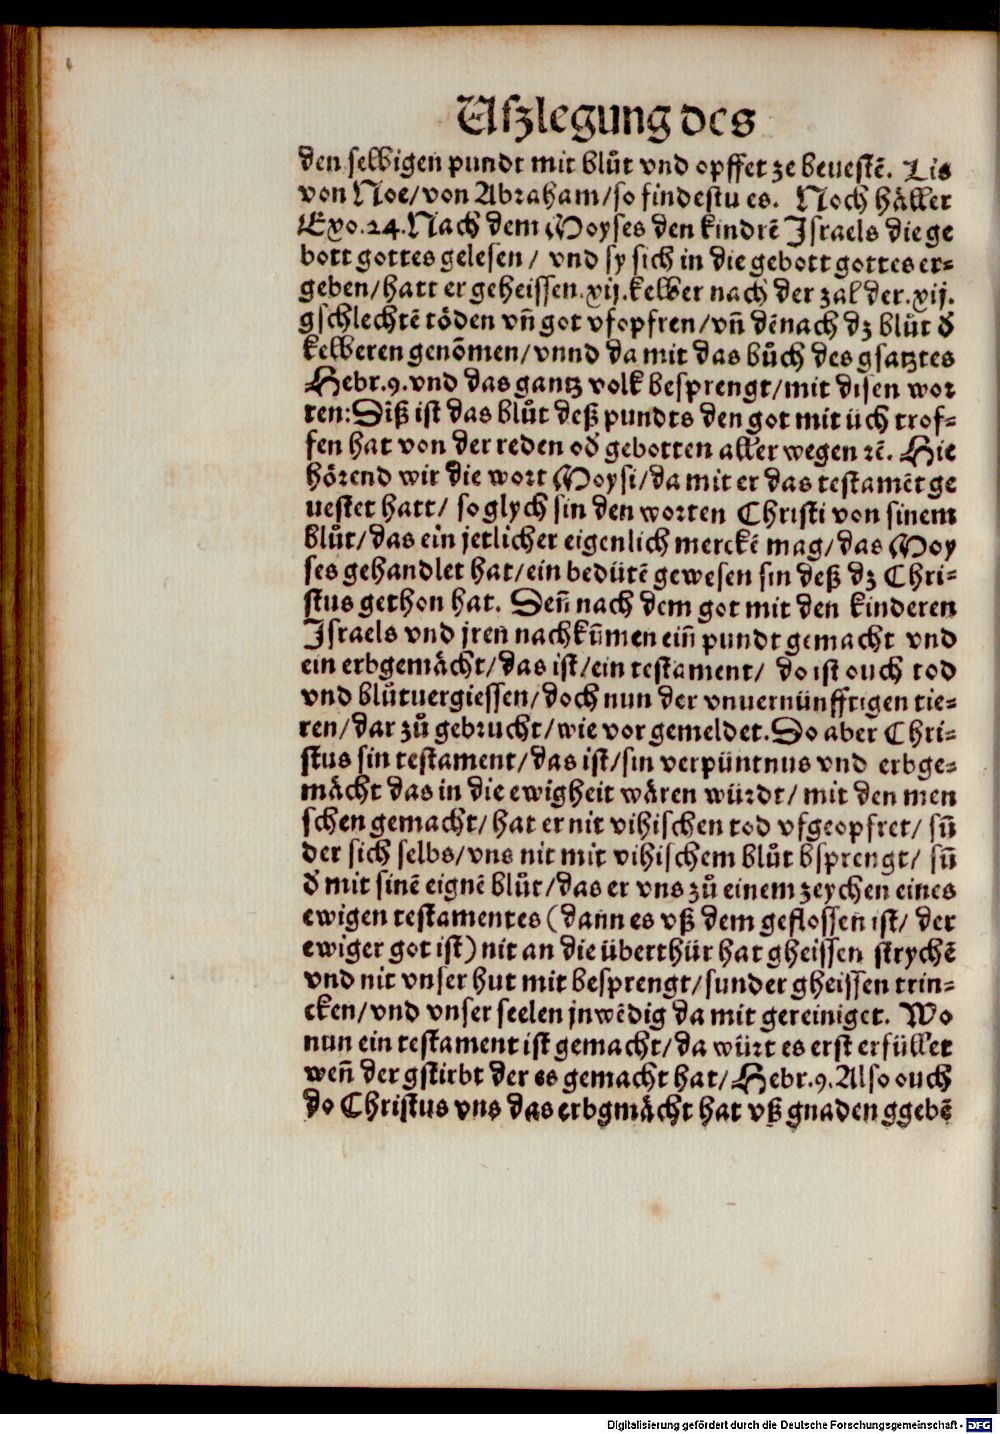 Uſzlegung des
den ſelbigen pundt mit blůt vnd opffer ze beueſtē. Lis
von Noe/von Abraham/ſo findeſtu es. Noch häller
Exo.24.Nach dem Moyſes den kindrē Iſraels die ge
bott gottes geleſen/ vnd ſy ſich in die gebott gottes er⸗
geben/hatt er geheiſſen.xij.kelber nach der zal der.xij.
gſchlechtē töden vn̄ got vfopfren/vn̄ dēnach dz blůt d̕
kelberen genōmen/vnnd da mit das bůch des gſatztes
Hebr.9.vnd das gantz volk beſprengt/mit diſen wor
ten:Diß iſt das blůt deß pundts den got mit üch trof⸗
fen hat von der reden od̕ gebotten aller wegen ꝛē. Hie
hörend wir die wort Moyſi/da mit er das teſtamēt ge
ueſtet hatt/ ſo glych ſin den worten Chriſti von ſinem
blůt/das ein jetlicher eigenlich merckē mag/das Moy
ſes gehandlet hat/ein bedütē geweſen ſin deß dz Chri⸗
ſtus gethon hat. Den̄ nach dem got mit den kinderen
Iſraels vnd jren nachkūmen ein̄ pundt gemacht vnd
ein erbgemächt/das iſt/ein teſtament/ do iſt ouch tod
vnd blůtuergieſſen/doch nun der vnuernünfftigen tie⸗
ren/dar zů gebrucht/wie vor gemeldet.Do aber Chri⸗
ſtus ſin teſtament/das iſt/ſin verpüntnus vnd erbge⸗
mächt das in die ewigheit wären würdt/ mit den men
ſchen gemacht/ hat er nit vihiſchen tod vfgeopfret/ ſun̄
der ſich ſelbs/vns nit mit vihiſchem blůt bſprengt/ ſun̄
d̕ mit ſinē eignē blůt/das er vns zů einem zeychen eines
ewigen teſtamentes (dann es vß dem gefloſſen iſt/ der
ewiger got iſt) nit an die überthür hat gheiſſen ſtrychē
vnd nit vnſer hut mit beſprengt/ſunder gheiſſen trin⸗
cken/vnd vnſer ſeelen jnwēdig da mit gereiniget. Wo
nun ein teſtament iſt gemacht/da würt es erſt erfüllet
wen̄ der gſtirbt der es gemacht hat/Hebr.9.Alſo ouch
do Chriſtus vns das erbgmächt hat vß gnaden ggebē
Digitalisierung gefördert durch die Deutsche Forschungsgemeinschaft - DFG